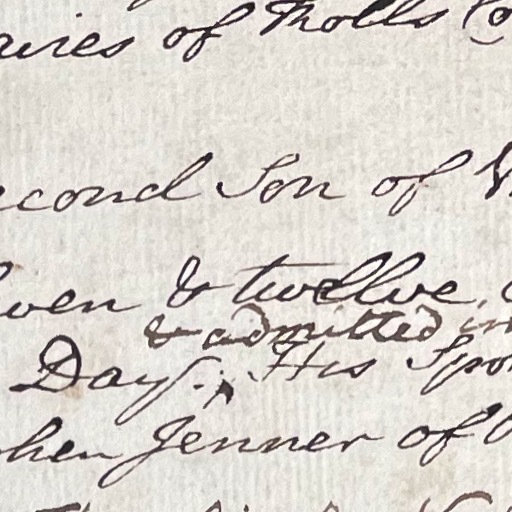 aires of Rolls Co
econd Son of W
lven & twelve,
& admitted in
Days. His Spo
phen Jenner of